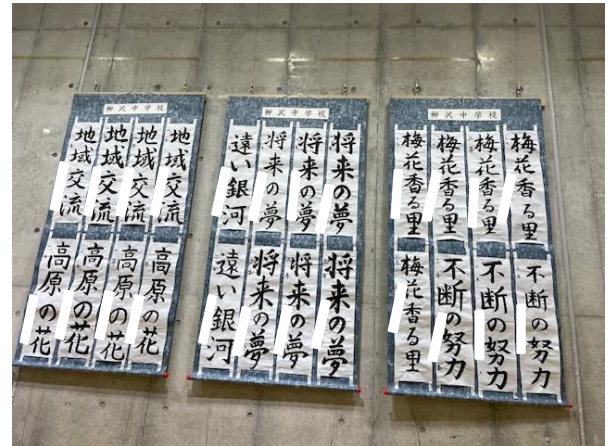 柳沢中学校
地域交流
地域交流
地域交流
地域交流
高原の花
高原の花
高原の花
高原の花
柳沢中学校
将来の夢
将来の夢
将来の夢
遠い銀河
将来の夢
将来の夢
将来の夢
遠い銀河
柳沢中学校
梅花香る里
梅花香る里
梅花香る里
梅花香る里
不断の努力
不断の努力
不断の努力
梅花香る里